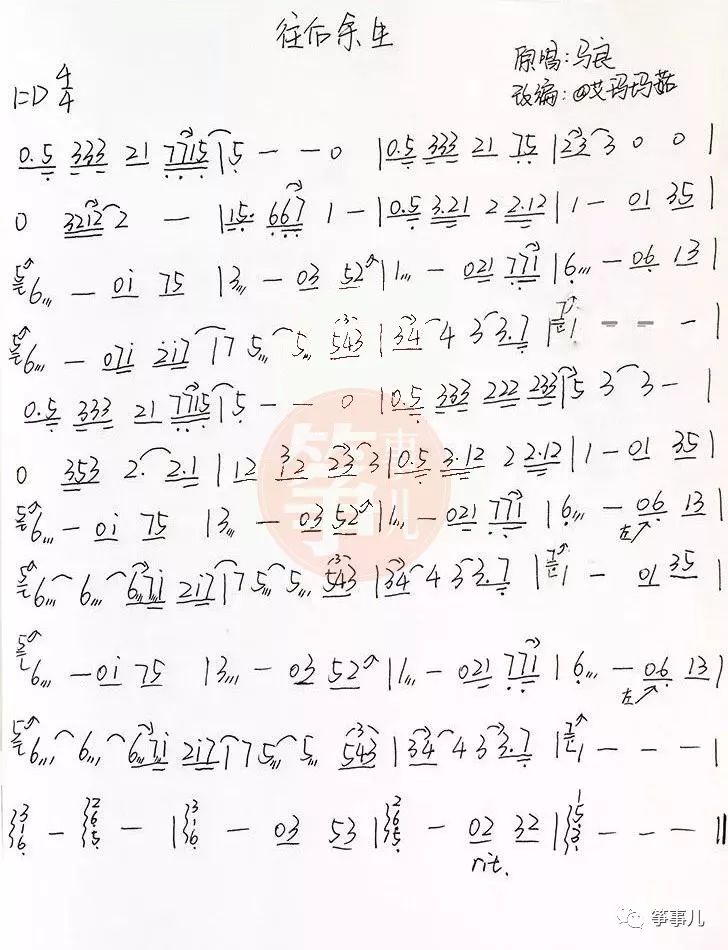 往后余生
原唱:马良
1=D 4/4
改编:@艾玛玛菇
0.5 333 21 7715 | 5 - - 0 | 0.5 333 21 75 | 233 0 0 |
0 32122 - | 15. 667 1 - | 0.5 3.21 2 2.12 | 1 - 01 35 |
5 6,,, - 0i 75 | 3,,, - 03 52 | 1,,, - 021 771 | 6,,, - 06 13 |
5 6,,, - 07i 2i7 | 7 5,,, 5,,, 543 | 34 4 3 3.7 | 7 1 - - - |
0.5 333 21 7715 | 5 - - 0 | 0.5 333 222 233 | 5 3 3 - |
0 353 2. 2.1 | 12 32 23 3 | 0.5 3.12 2 2.12 | 1 - 01 35 |
5 6,,, - 0i 75 | 3,,, - 03 52 | 1,,, - 021 771 | 6,,, - 06 13 |
左
5 6,,, 6,,, 67i 2i7 | 7 5,,, 5,,, 543 | 34 4 3 3.7 | 7 1 - 01 35 |
5 6,,, - 0i 75 | 3,,, - 03 52 | 1,,, - 021 771 | 6,,, - 06 13 |
左
5 6,,, 6,,, 67i 2i7 | 7 5,,, 5,,, 543 | 34 4 3 3.7 | 7 1 - - - |
316 - 265 - | 316 - 03 53 | 265 - 02 32 | 153 - - - ‖
rit.
筝事儿
筝事儿